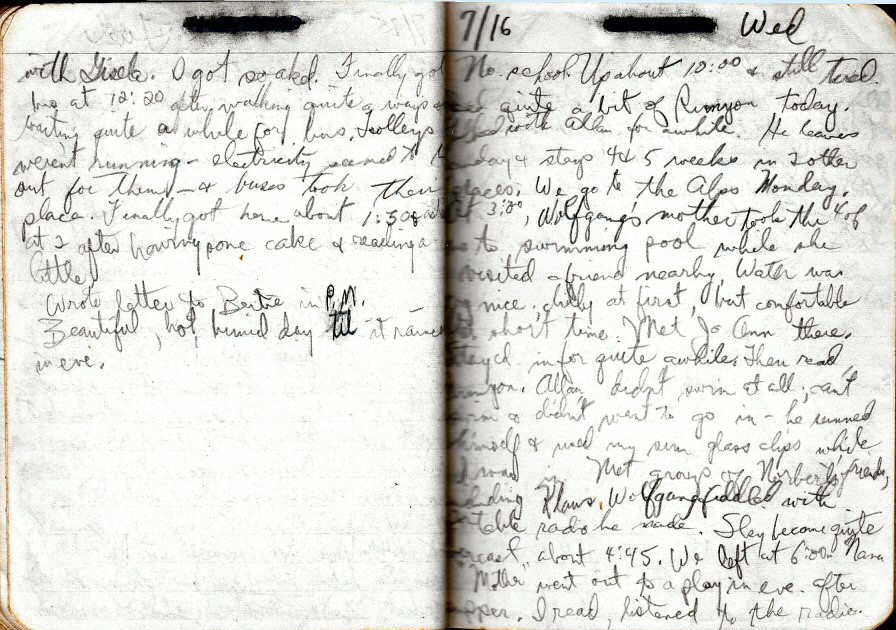 with Gisela. I got soaked. Finally got
bus at 12:20 after walking quite a ways &
waiting quite a while for bus. Trolleys
weren't running - electricity seemed to
out for them - & buses took their
place. Finally got home about 1:30 &
at 2 after having one cake & reading a
little.
Wrote letter to Bertie in P.M.
Beautiful, hot, humid day til it rained
in eve.
7/16 Wed
No school. Up about 10:00 & still tired.
quite a bit of Runyon today.
with Allan for awhile. He leaves
& stays 4 & 5 weeks in 2 other
places. We go to the Alps Monday.
At 3:00, Wolfgang's mother took the 4 of
us to swimming pool while she
visited a friend nearby. Water was
nice, chilly at first, but comfortable
short time. Met Jo Ann there.
Stayed in for quite awhile. Then read
Runyon. Allan didn't swim at all; can't
swim & didn't want to go in - he sunned
himself & used my sun glass clips while
I was in. Met group of Norbert's friends,
including Klaus. Wolfgang fiddled with
portable radio he made. Sky became quite
overcast about 4:45. We left at 6:00.
Mother went out to a play in eve. after
supper. I read, listened to the radio.